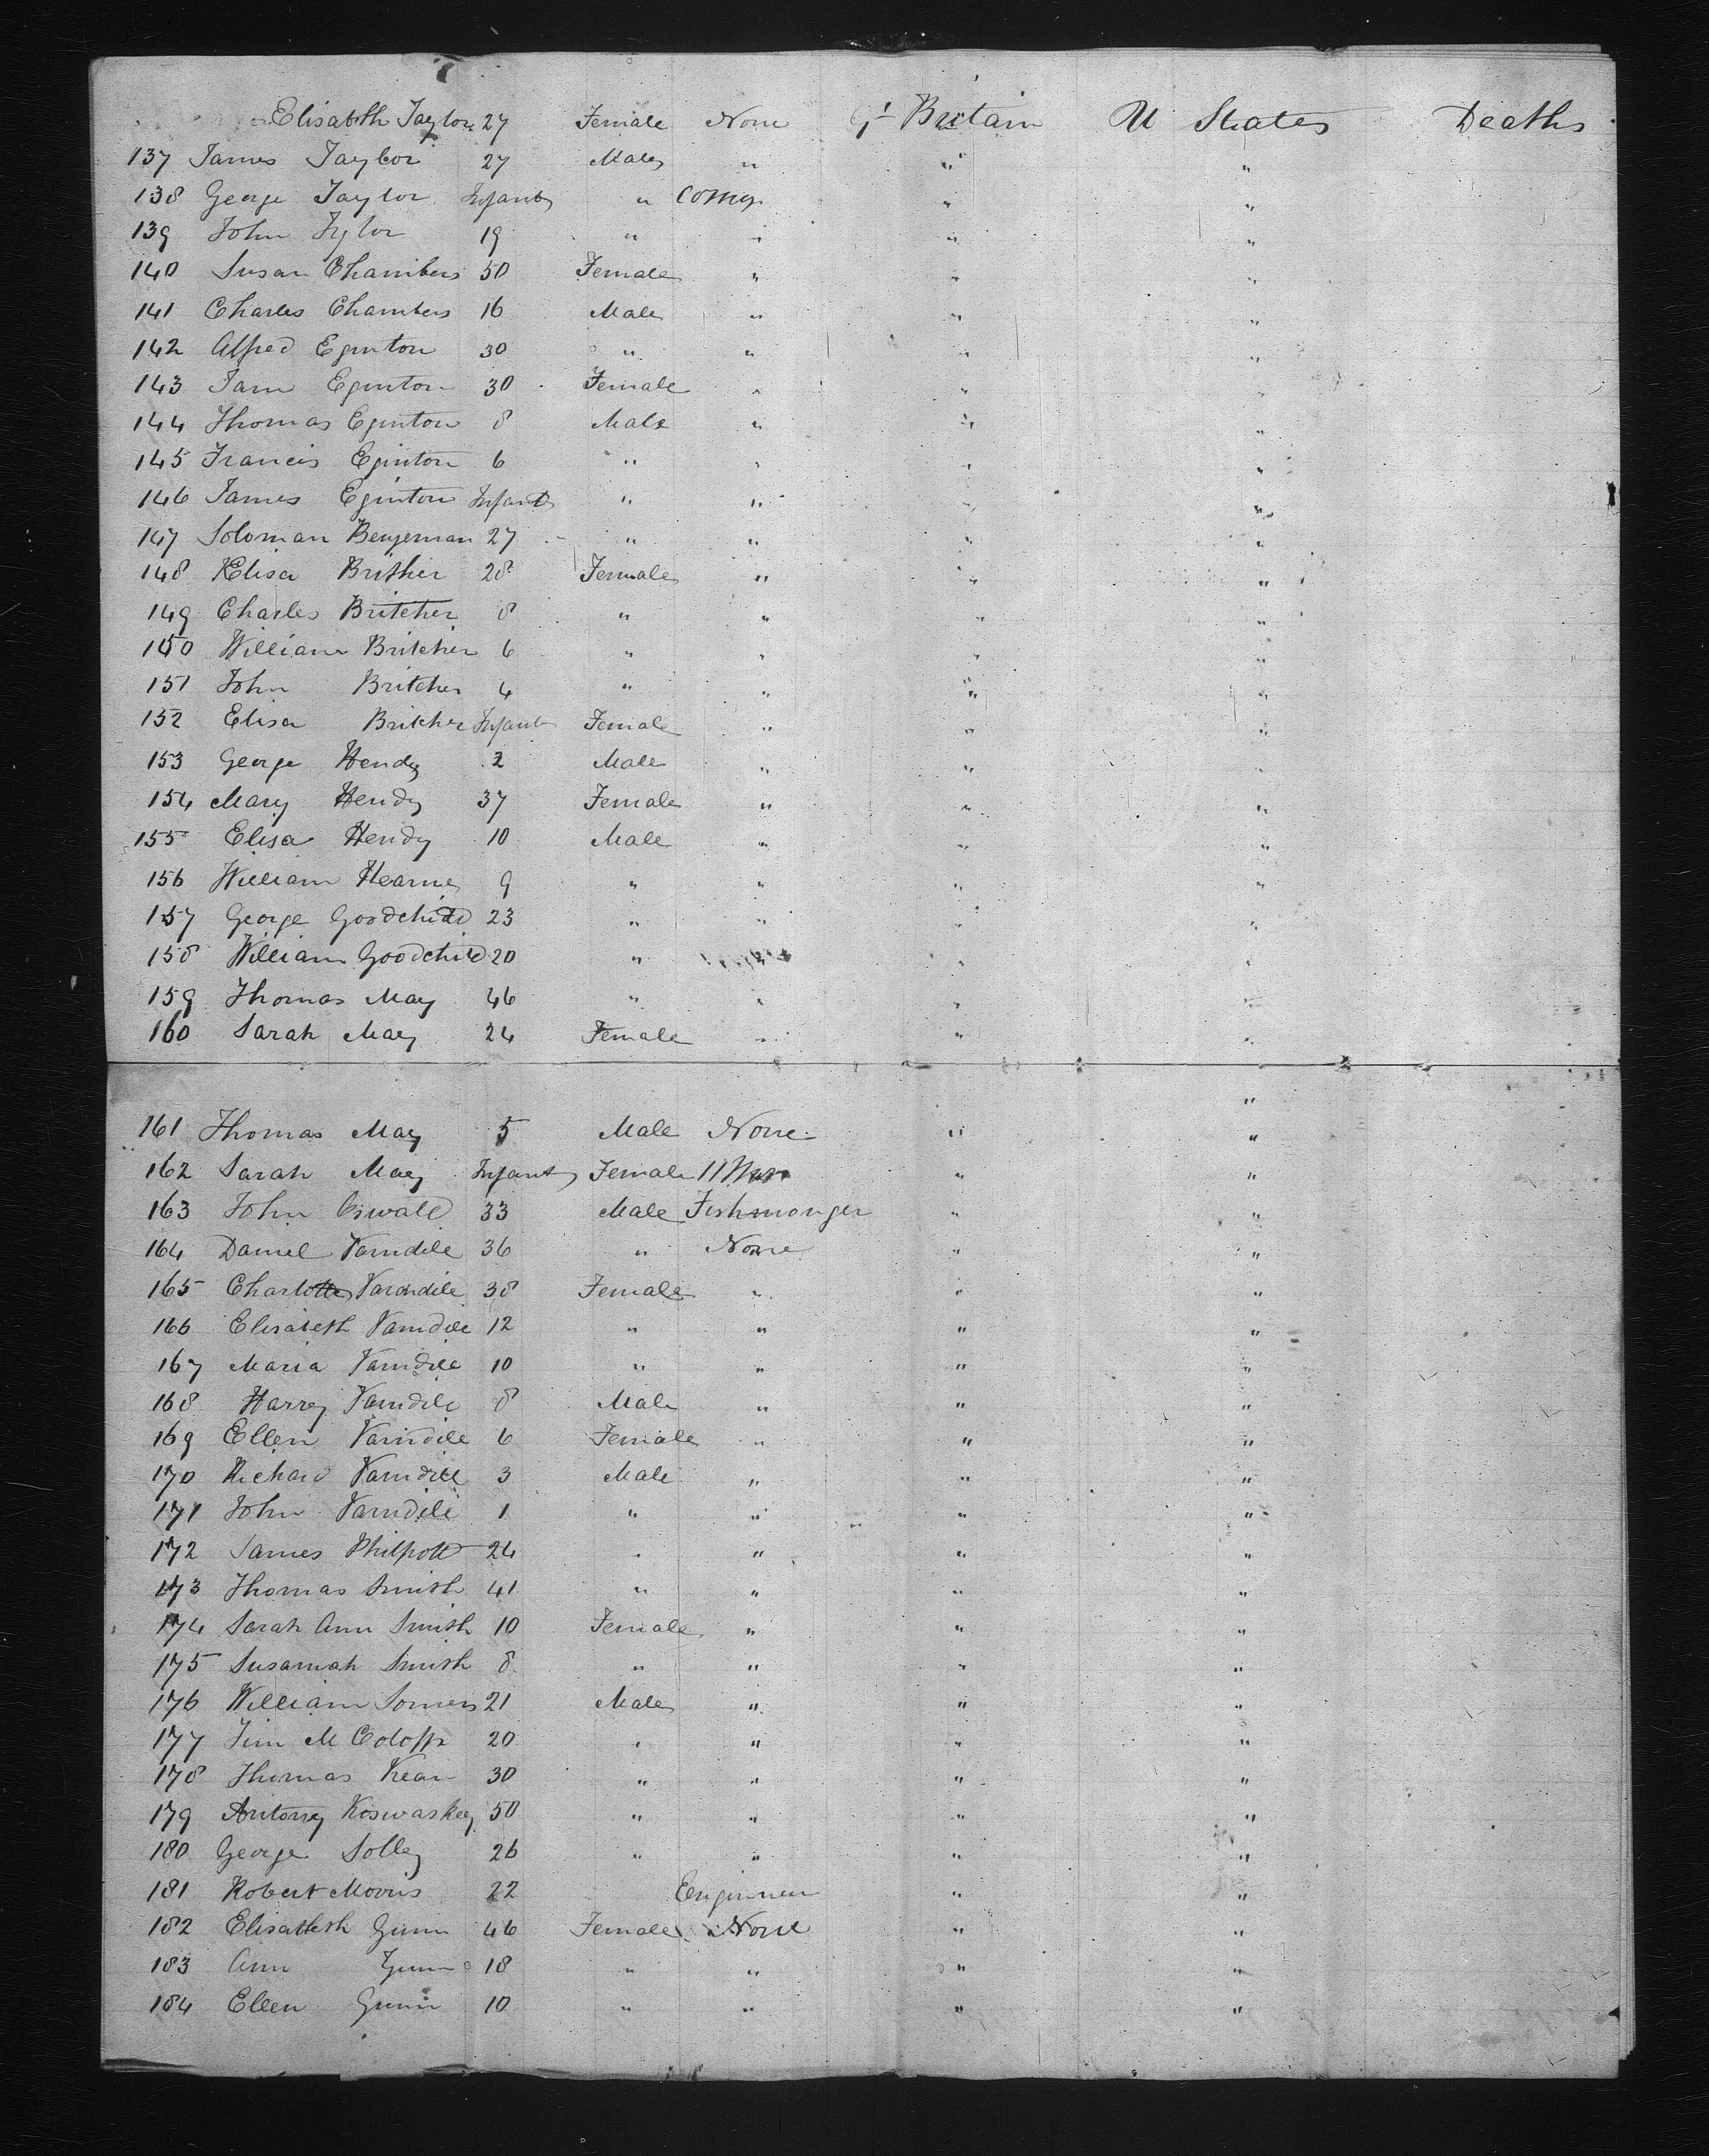 Elisabeth Taylor 27 Female None Gt Britain U States Deaths
137 James Taylor 27 Male " " "
138 George Taylor Infant " " "
139 John Tylor 19 " " " "
140 Susan Chambers 50 Female " " "
141 Charles Chambers 16 Male " " "
142 Alfred Eginton 30 " " " "
143 Jane Eginton 30 Female " " "
144 Thomas Eginton 8 Male " " "
145 Francis Eginton 6 " " " "
146 James Eginton Infant " " " "
147 Soloman Benjeman 27 " " " "
148 Elisa Brither 28 Female " " "
149 Charles Britcher 8 " " " "
150 William Britcher 6 " " " "
151 John Britcher 4 " " " "
152 Elisa Britcher Infant Female " " "
153 George Hendy 2 Male " " "
154 Mary Hendy 37 Female " " "
155 Elisa Hendy 10 Male " " "
156 William Hearne 9 " " " "
157 George Goodchild 23 " " " "
158 William Goodchild 20 " " " "
159 Thomas May 46 " " " "
160 Sarah May 24 Female " " "
"
161 Thomas May 5 Male None " "
162 Sarah May Infant Female " "
163 John Oswald 33 Male Fishmonger " "
164 Daniel Varndile 36 " None " "
165 Charlotte Varndile 38 Female " " "
166 Elisabeth Varndile 12 " " " "
167 Maria Varndile 10 " " " "
168 Harry Varndile 8 Male " " "
169 Ellen Varndile 6 Female " " "
170 Richard Varndile 3 Male " " "
171 John Varndile 1 " " " "
172 James Philpott 24 " " " "
173 Thomas Smith 41 " " " "
174 Sarah Ann Smith 10 Female " " "
175 Susannah Smith 8 " " " "
176 William Somers 21 Male " " "
177 Jim M 20 " " " "
178 Thomas Kean 30 " " " "
179 Antony Koswaskey 50 " " " "
180 George Solley 26 " " " "
181 Robert Morris 22 Enginneu " "
182 Elisabeth Gunn 46 Female None " "
183 Ann Gunn 18 " " " "
184 Ellen Gunn 10 " " " "